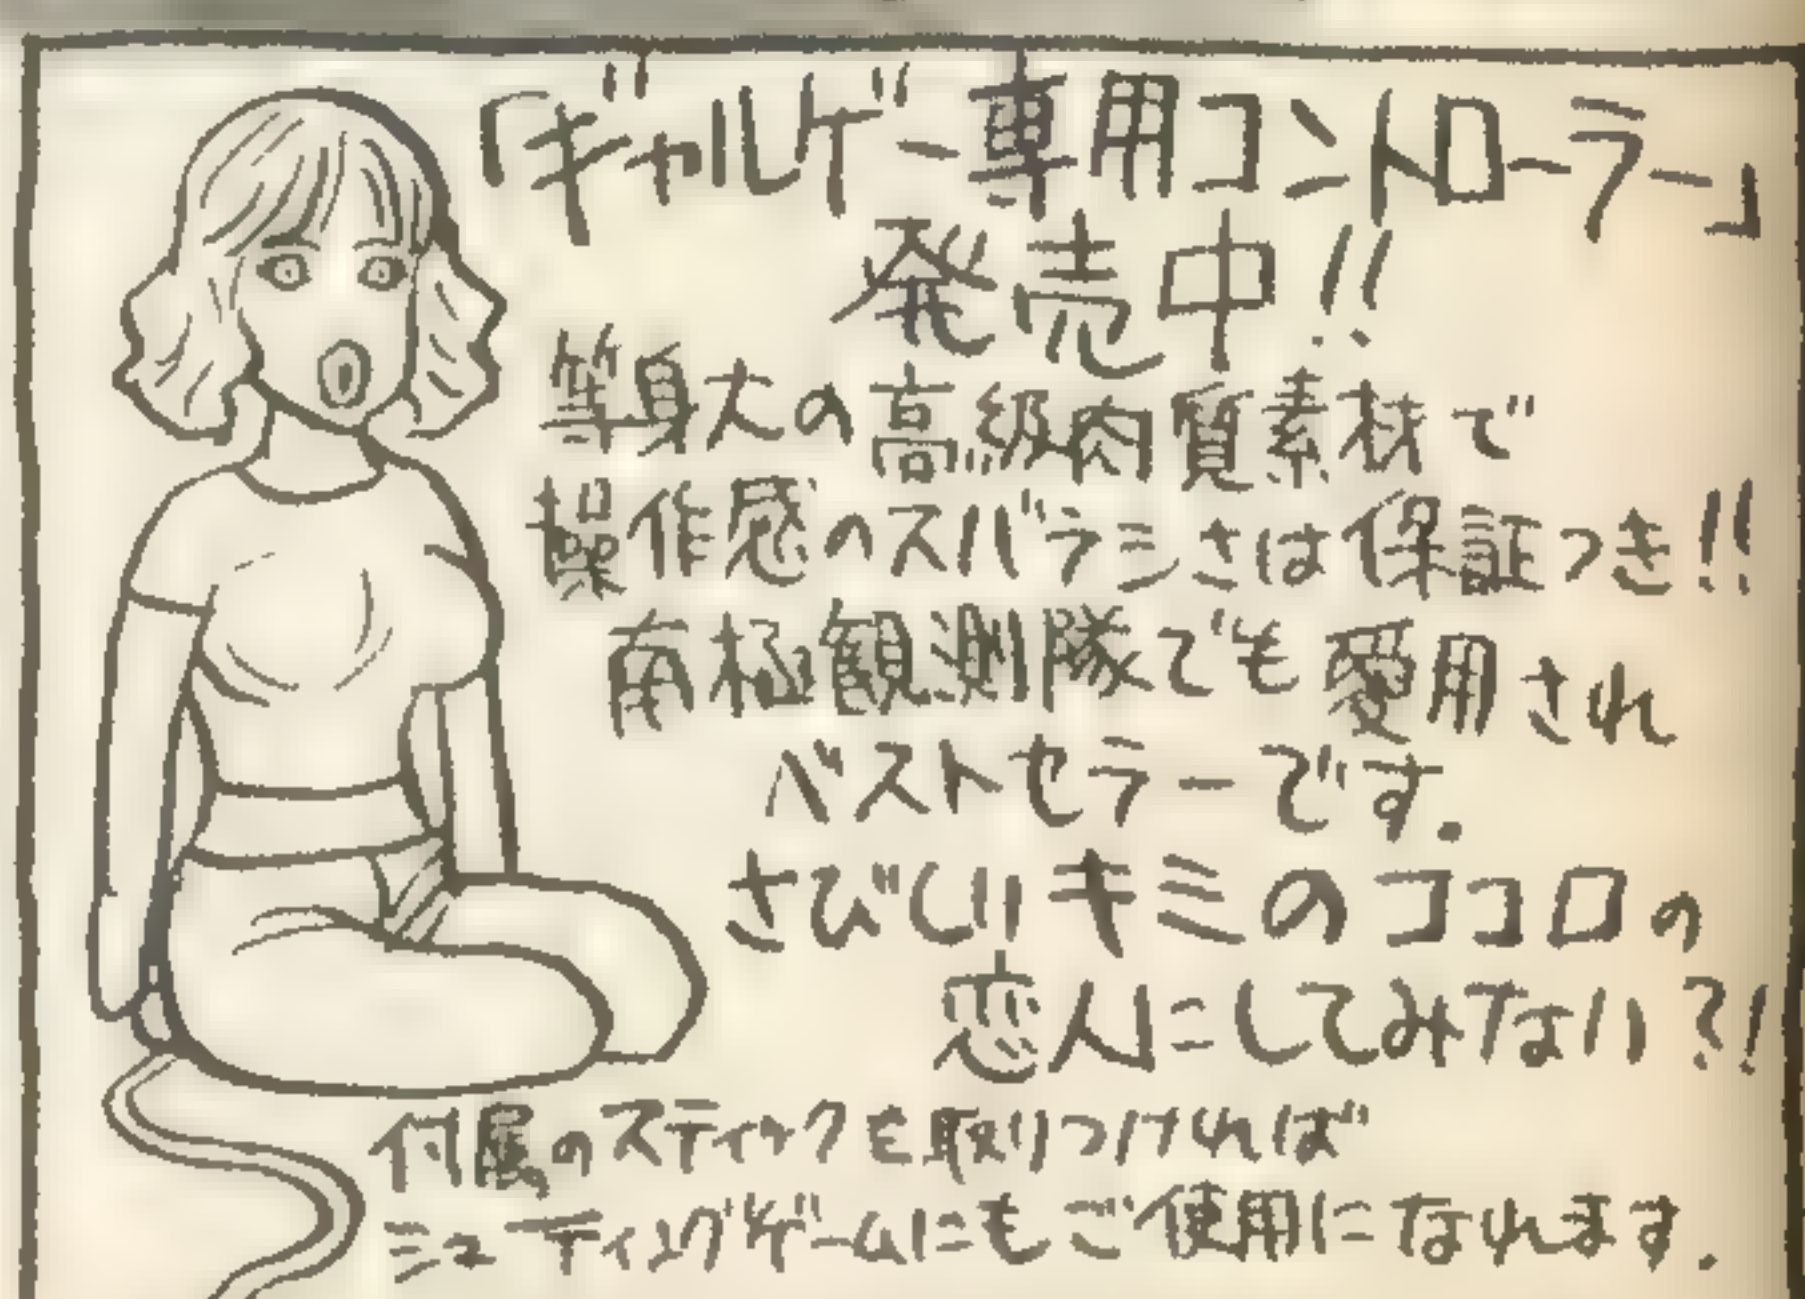 「ギャルゲー専用コントローラー」
発売中!!
等身大の高級肉質素材で
操作感のスバラシさは保証つき!!
南極観測隊でも愛用され
ベストセラーです。
さびしいキミのココロの
恋人にしてみてない?!
付属のスティックを取りつければ
シューティングゲームにもご使用になれます。